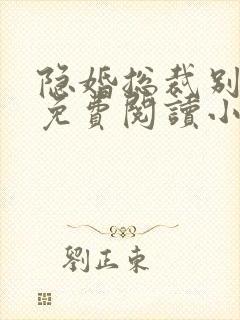 隐婚总裁别
免費閱讀小
劉正东